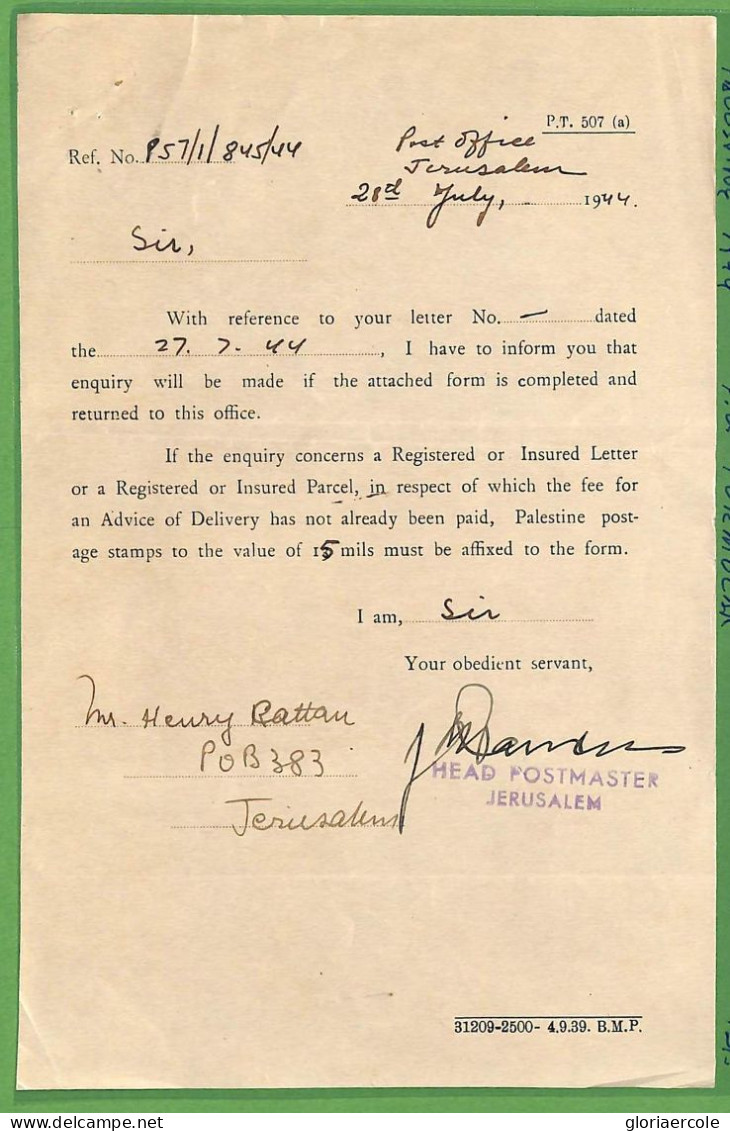 P.T. 507 (a)
Ref. No. P57/1/845/44
Post Office
Jerusalem
28th July, 1944.
Sir,
With reference to your letter No. — dated
the 27.7.44, I have to inform you that
enquiry will be made if the attached form is completed and
returned to this office.
If the enquiry concerns a Registered or Insured Letter
or a Registered or Insured Parcel, in respect of which the fee for
an Advice of Delivery has not already been paid, Palestine post-
age stamps to the value of 15 mils must be affixed to the form.
I am, Sir
Your obedient servant,
Mr. Henry Cattan
POB 383
Jerusalem
HEAD POSTMASTER
JERUSALEM
31209-2500- 4.9.39. B.M.P.
gloriaercole